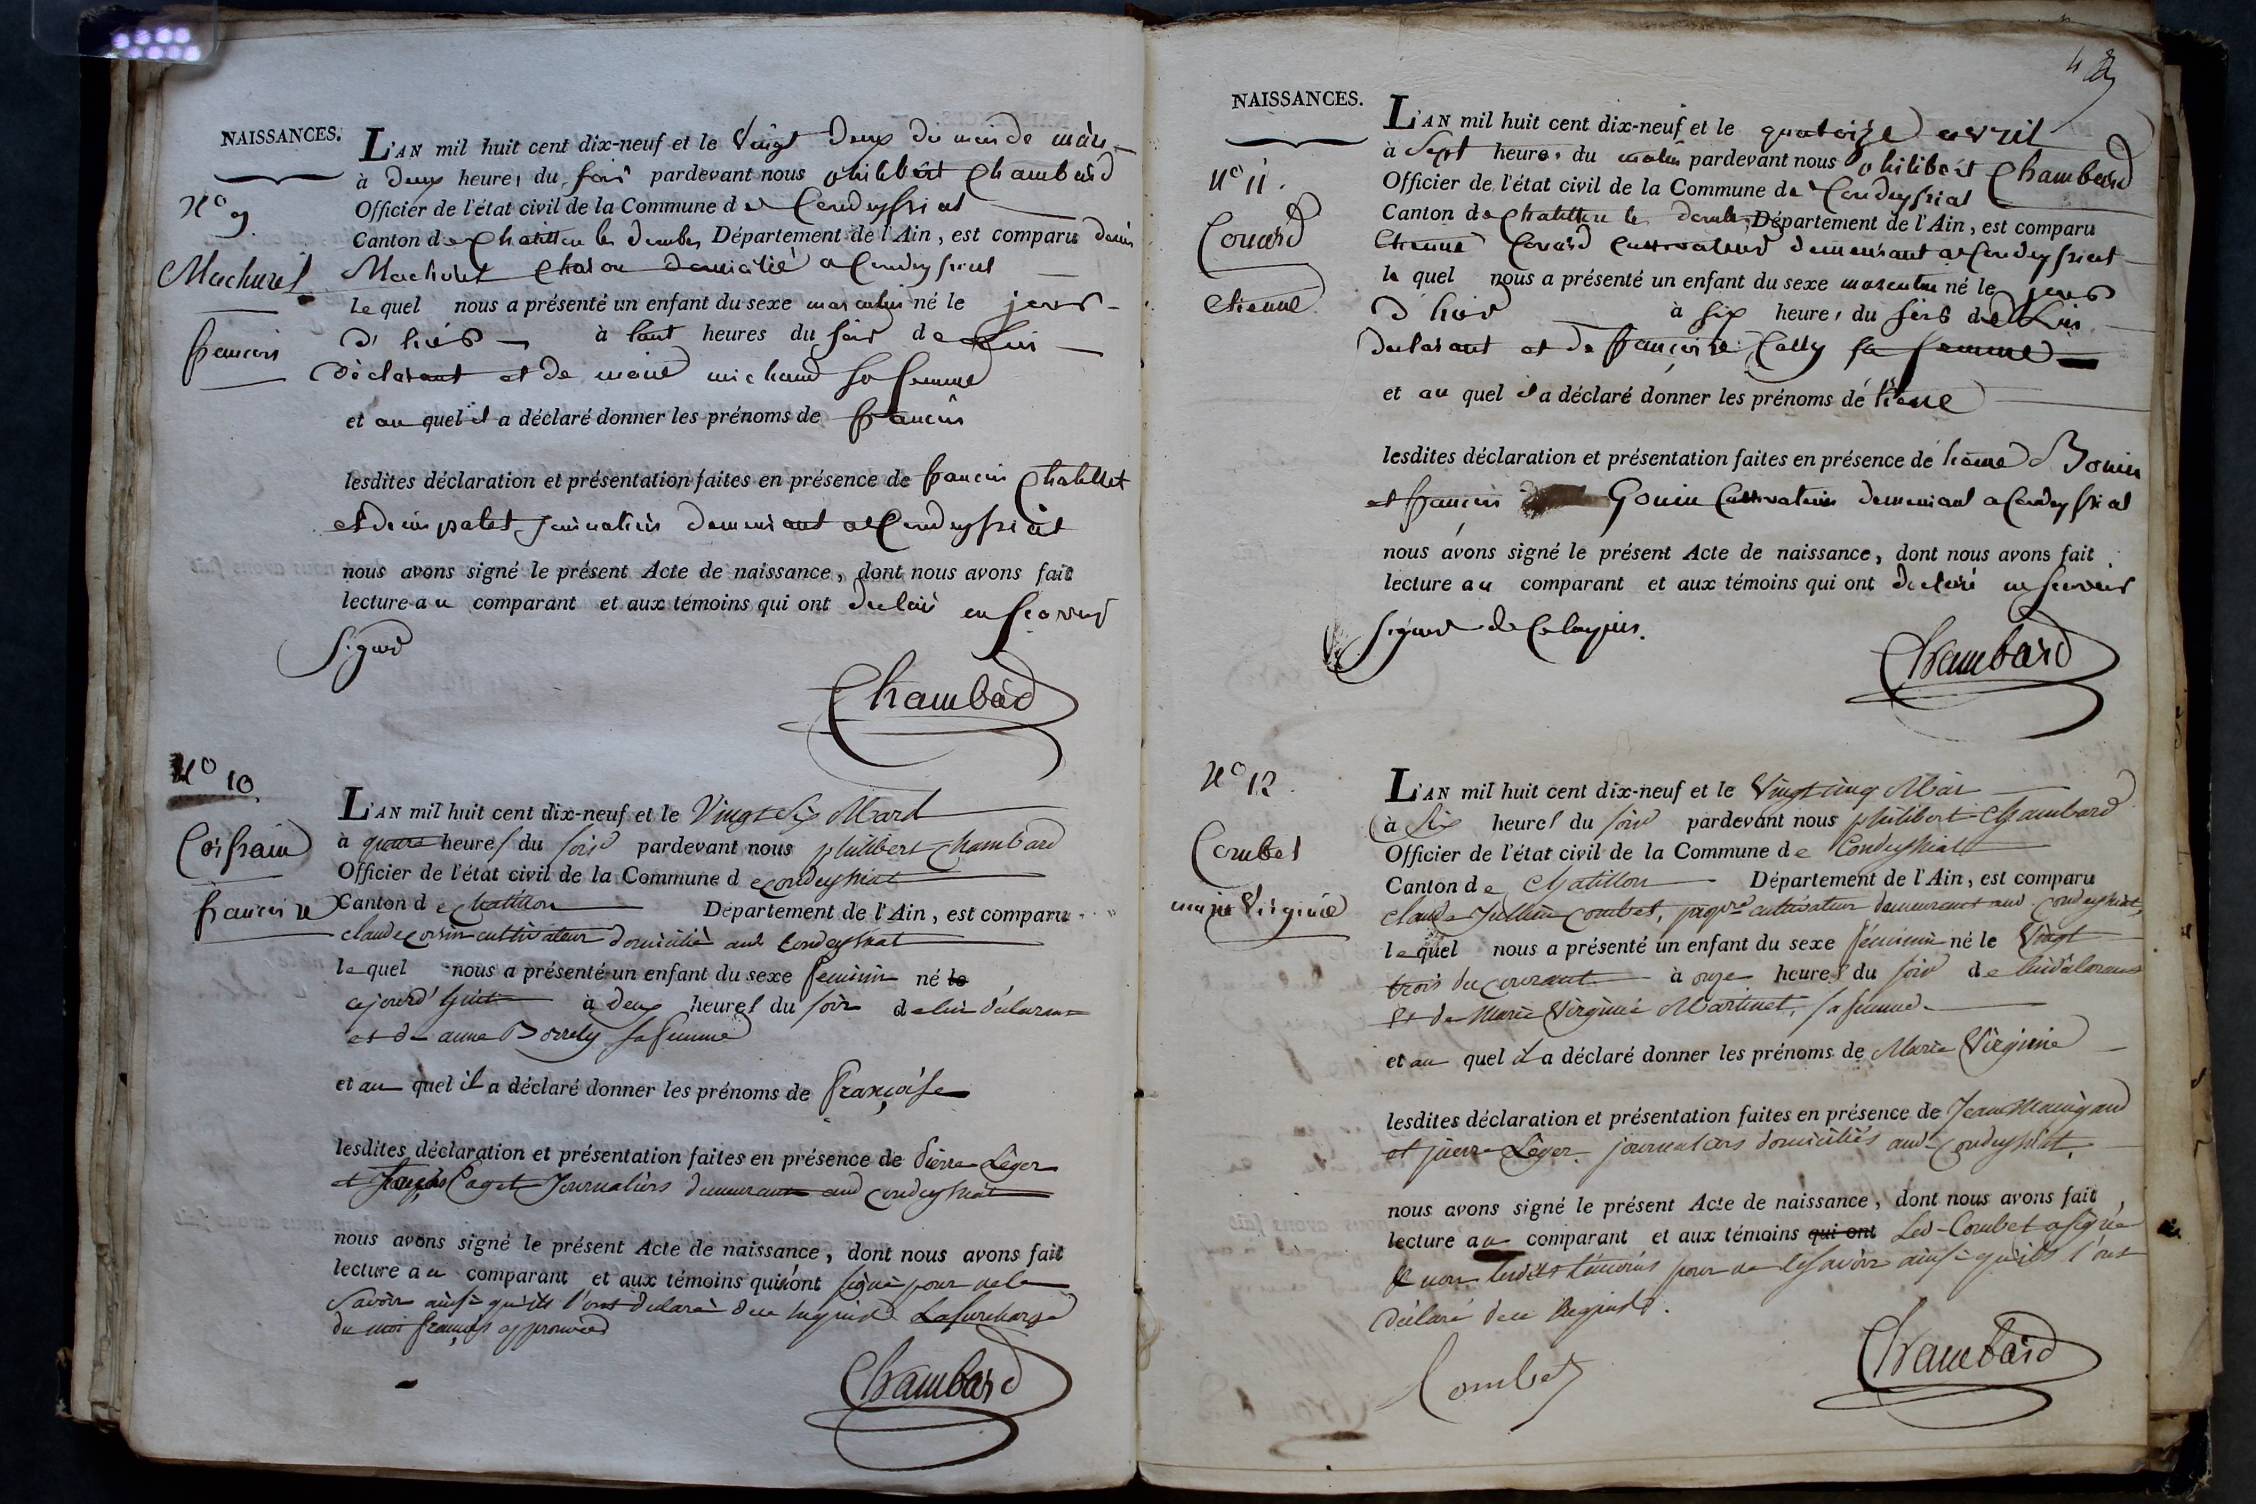 NAISSANCES.
N° 9
Machuret
francois
L'AN mil huit cent dix-neuf et le Vingt Deux du mois de mars
à deux heures du soir pardevant nous philibert Chambard
Officier de l'état civil de la Commune de Condeyssiat
Canton de Chatillon les dombes Département de l'Ain, est comparu denis
Machuret domicilié a Condeyssiat
lequel nous a présenté un enfant du sexe masculin né le jour
d'hier à huit heures du soir de lui
déclarant et de marie michaud sa femme
et au quel il a déclaré donner les prénoms de francois
lesdites déclaration et présentation faites en présence de francois Chatillet
et denis palet journaliers demeurant a Condeyssiat
nous avons signé le présent Acte de naissance, dont nous avons fait
lecture au comparant et aux témoins qui ont declaré
signer
Chambard
N° 10.
Corsain
francoise
L'AN mil huit cent dix-neuf et le Vingt Six Mard
à quatre heures du soir pardevant nous philibert Chambard
Officier de l'état civil de la Commune de Condeyssiat
Canton de Chatillon Département de l'Ain, est comparu
claude corsin cultivateur domicilié aud. Condeyssiat
lequel nous a présenté un enfant du sexe feminin né le
cejourd'huit à deux heures du soir de lui déclarant
et de anne Borrely sa femme
et au quel il a déclaré donner les prénoms de Françoise
lesdites déclaration et présentation faites en présence de Pierre Léger
et françois Caget Journaliers demeurant aud. Condeyssiat
nous avons signé le présent Acte de naissance, dont nous avons fait
lecture au comparant et aux témoins qui n'ont signé pour ne le
savoir ainsi qu'ils l'ont declaré de ce requis La surcharge
du mot françois approuvée
Chambard
NAISSANCES.
N° 11.
Couard
etienne
L'AN mil huit cent dix-neuf et le quatorze avril
à Sept heures du matin pardevant nous philibert Chambard
Officier de l'état civil de la Commune de Condeyssiat
Canton de Chatillon les dombes, Département de l'Ain, est comparu
Etienne Couard cultivateur demeurant a Condeyssiat
le quel nous a présenté un enfant du sexe masculin né le jour
d'hier à six heures du soir de lui
declarant et de françoise Catty sa femme
et au quel il a déclaré donner les prénoms détiene
lesdites déclaration et présentation faites en présence détienne Bonin
et francois Gonin cultivateurs demeurant a Condeyssiat
nous avons signé le présent Acte de naissance, dont nous avons fait
lecture au comparant et aux témoins qui ont declaré ne savoir
signer de ce requis.
Chambard
N° 12.
Combet
marie Virginie
L'AN mil huit cent dix-neuf et le Vingt cinq Mai
à Six heures du soir pardevant nous philibert Chambard
Officier de l'état civil de la Commune de Condeyssiat
Canton de Chatillon Département de l'Ain, est comparu
claude Jullien combet, propre cultivateur demeurant aud. condeyssiat,
lequel nous a présenté un enfant du sexe féminin né le Vingt
trois du courant à onze heures du soir de lui déclarant
et de Marie Virginie Martinet, sa femme
et au quel il a déclaré donner les prénoms de Marie Virginie
lesdites déclaration et présentation faites en présence de Jean
et pierre Léger journaliers domiciliés aud. Condeyssiat,
nous avons signé le présent Acte de naissance, dont nous avons fait
lecture au comparant et aux témoins qui ont Led. Combet a signé
& non lesdits témoins pour ne le savoir ainsi qu'ils l'ont
déclaré de ce Requis.
Combet
Chambard